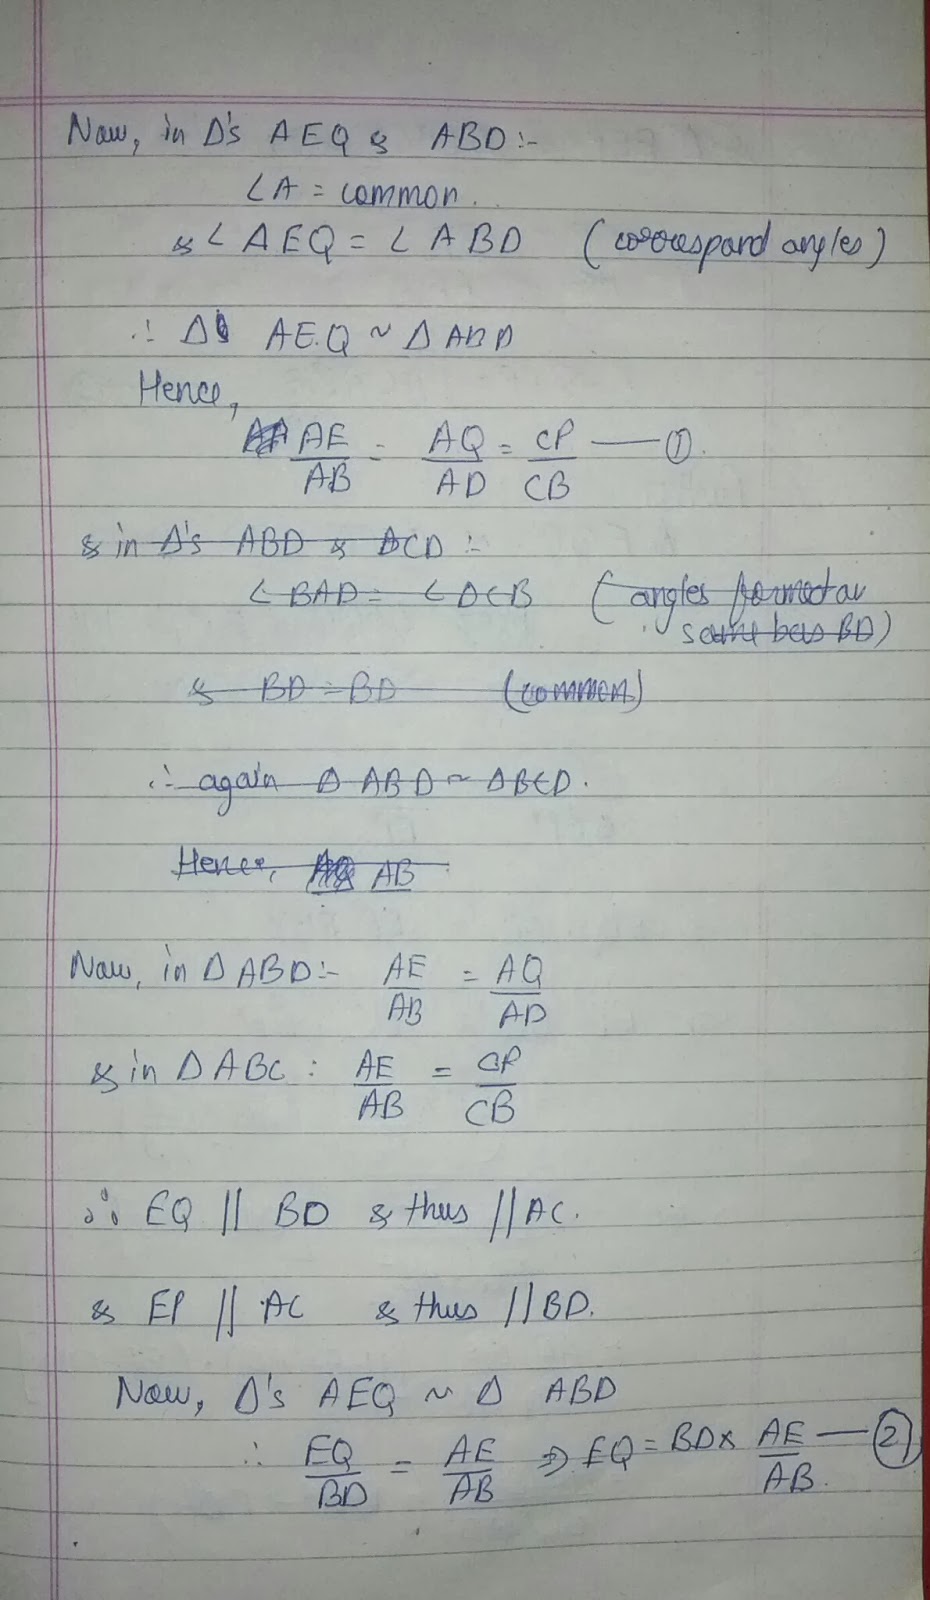 Now, in Δ's AEQ & ABD :-
∠A = common.
& ∠AEQ = ∠ABD (correspond angles)
∴ Δ AEQ ~ Δ ABD
Hence,
AE/AB = AQ/AD = CP/CB —— ①
& in Δ's ABD & DCD :-
∠BAD = ∠DCB (angles formed on
same bas BD)
& BD = BD (common)
∴ again Δ ABD ~ ΔBCD.
Hence, AB
Now, in Δ ABD :- AE/AB = AQ/AD
& in Δ ABC : AE/AB = CP/CB
∴ EQ || BD & thus || AC.
& EP || AC & thus || BD.
Now, Δ's AEQ ~ Δ ABD
∴ EQ/BD = AE/AB ⇒ EQ = BD × AE/AB. —— ②